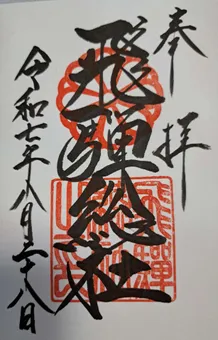 奉拝
飛騨総社
令和七年八月二十八日